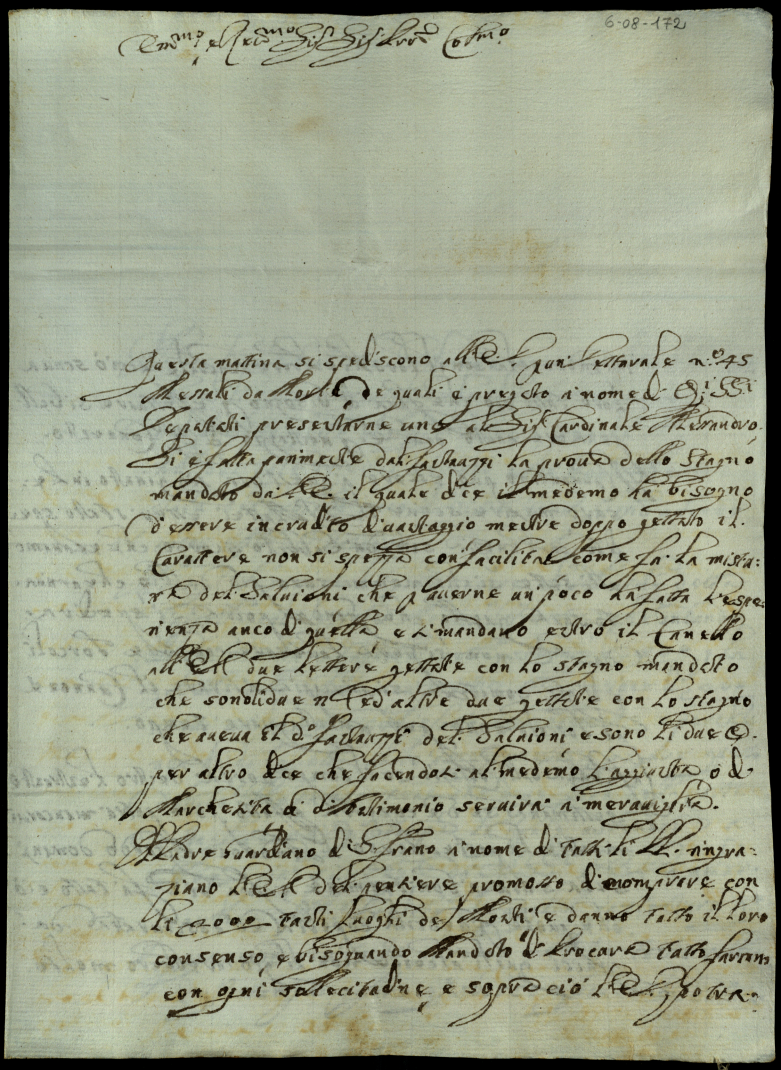 6-08-172
Em.mo e Rev.mo Sig.r Sig.r Pron Col.mo
Questa mattina si spediscono all'E. V. per Vetturale n.º 45
Messali da Morti, de quali è pregato a nome de
Deputati presentarne uno al Sig.r Cardinale Alessandro.
Si è fatta parimente dal la prova dello stagno
mandato da V. E. il quale dice il medemo ha bisogno
d'essere incrudito d'vantaggio mentre doppo gettato il
Carattere non si spezza con facilità come fa la mistu:
ra del Salvioni che p averne un poco ha fatta l'espe:
rienza anco di quella e si mandano entro il Canello
all'E. V. due lettere gettate con lo stagno mandato
che sono li due n ed' altre due gettate con lo stagno
che aveva il d.º del Salvioni e sono li due
per altro dice che facendoli al medemo l'aggiunta o di
Marchesita o d'Antimonio servirà a meraviglia.
Il Padre Guardiano di S. Fran.o a nome di tutti li ringra:
ziano l'E. V. del pensiere promosso di comprare con
li 2000 tanti luoghi de Monti e danno tutto il loro
consenso, e bisognando Mandato di Procura tutto faranno
con ogni sollecitudine, e sopra ciò l'E. V. potrà